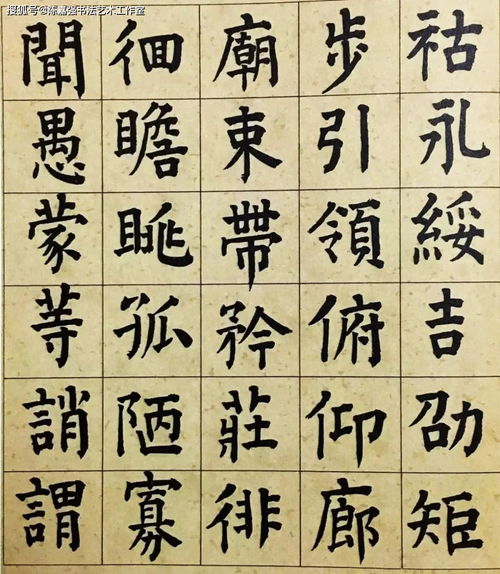 搜狐号@陈嘉强书法艺术工作室
祜永綏吉劭矩
步引領俯仰廊
廟束帶矜莊徘
徊瞻眺孤陋寡
聞愚蒙等誚謂